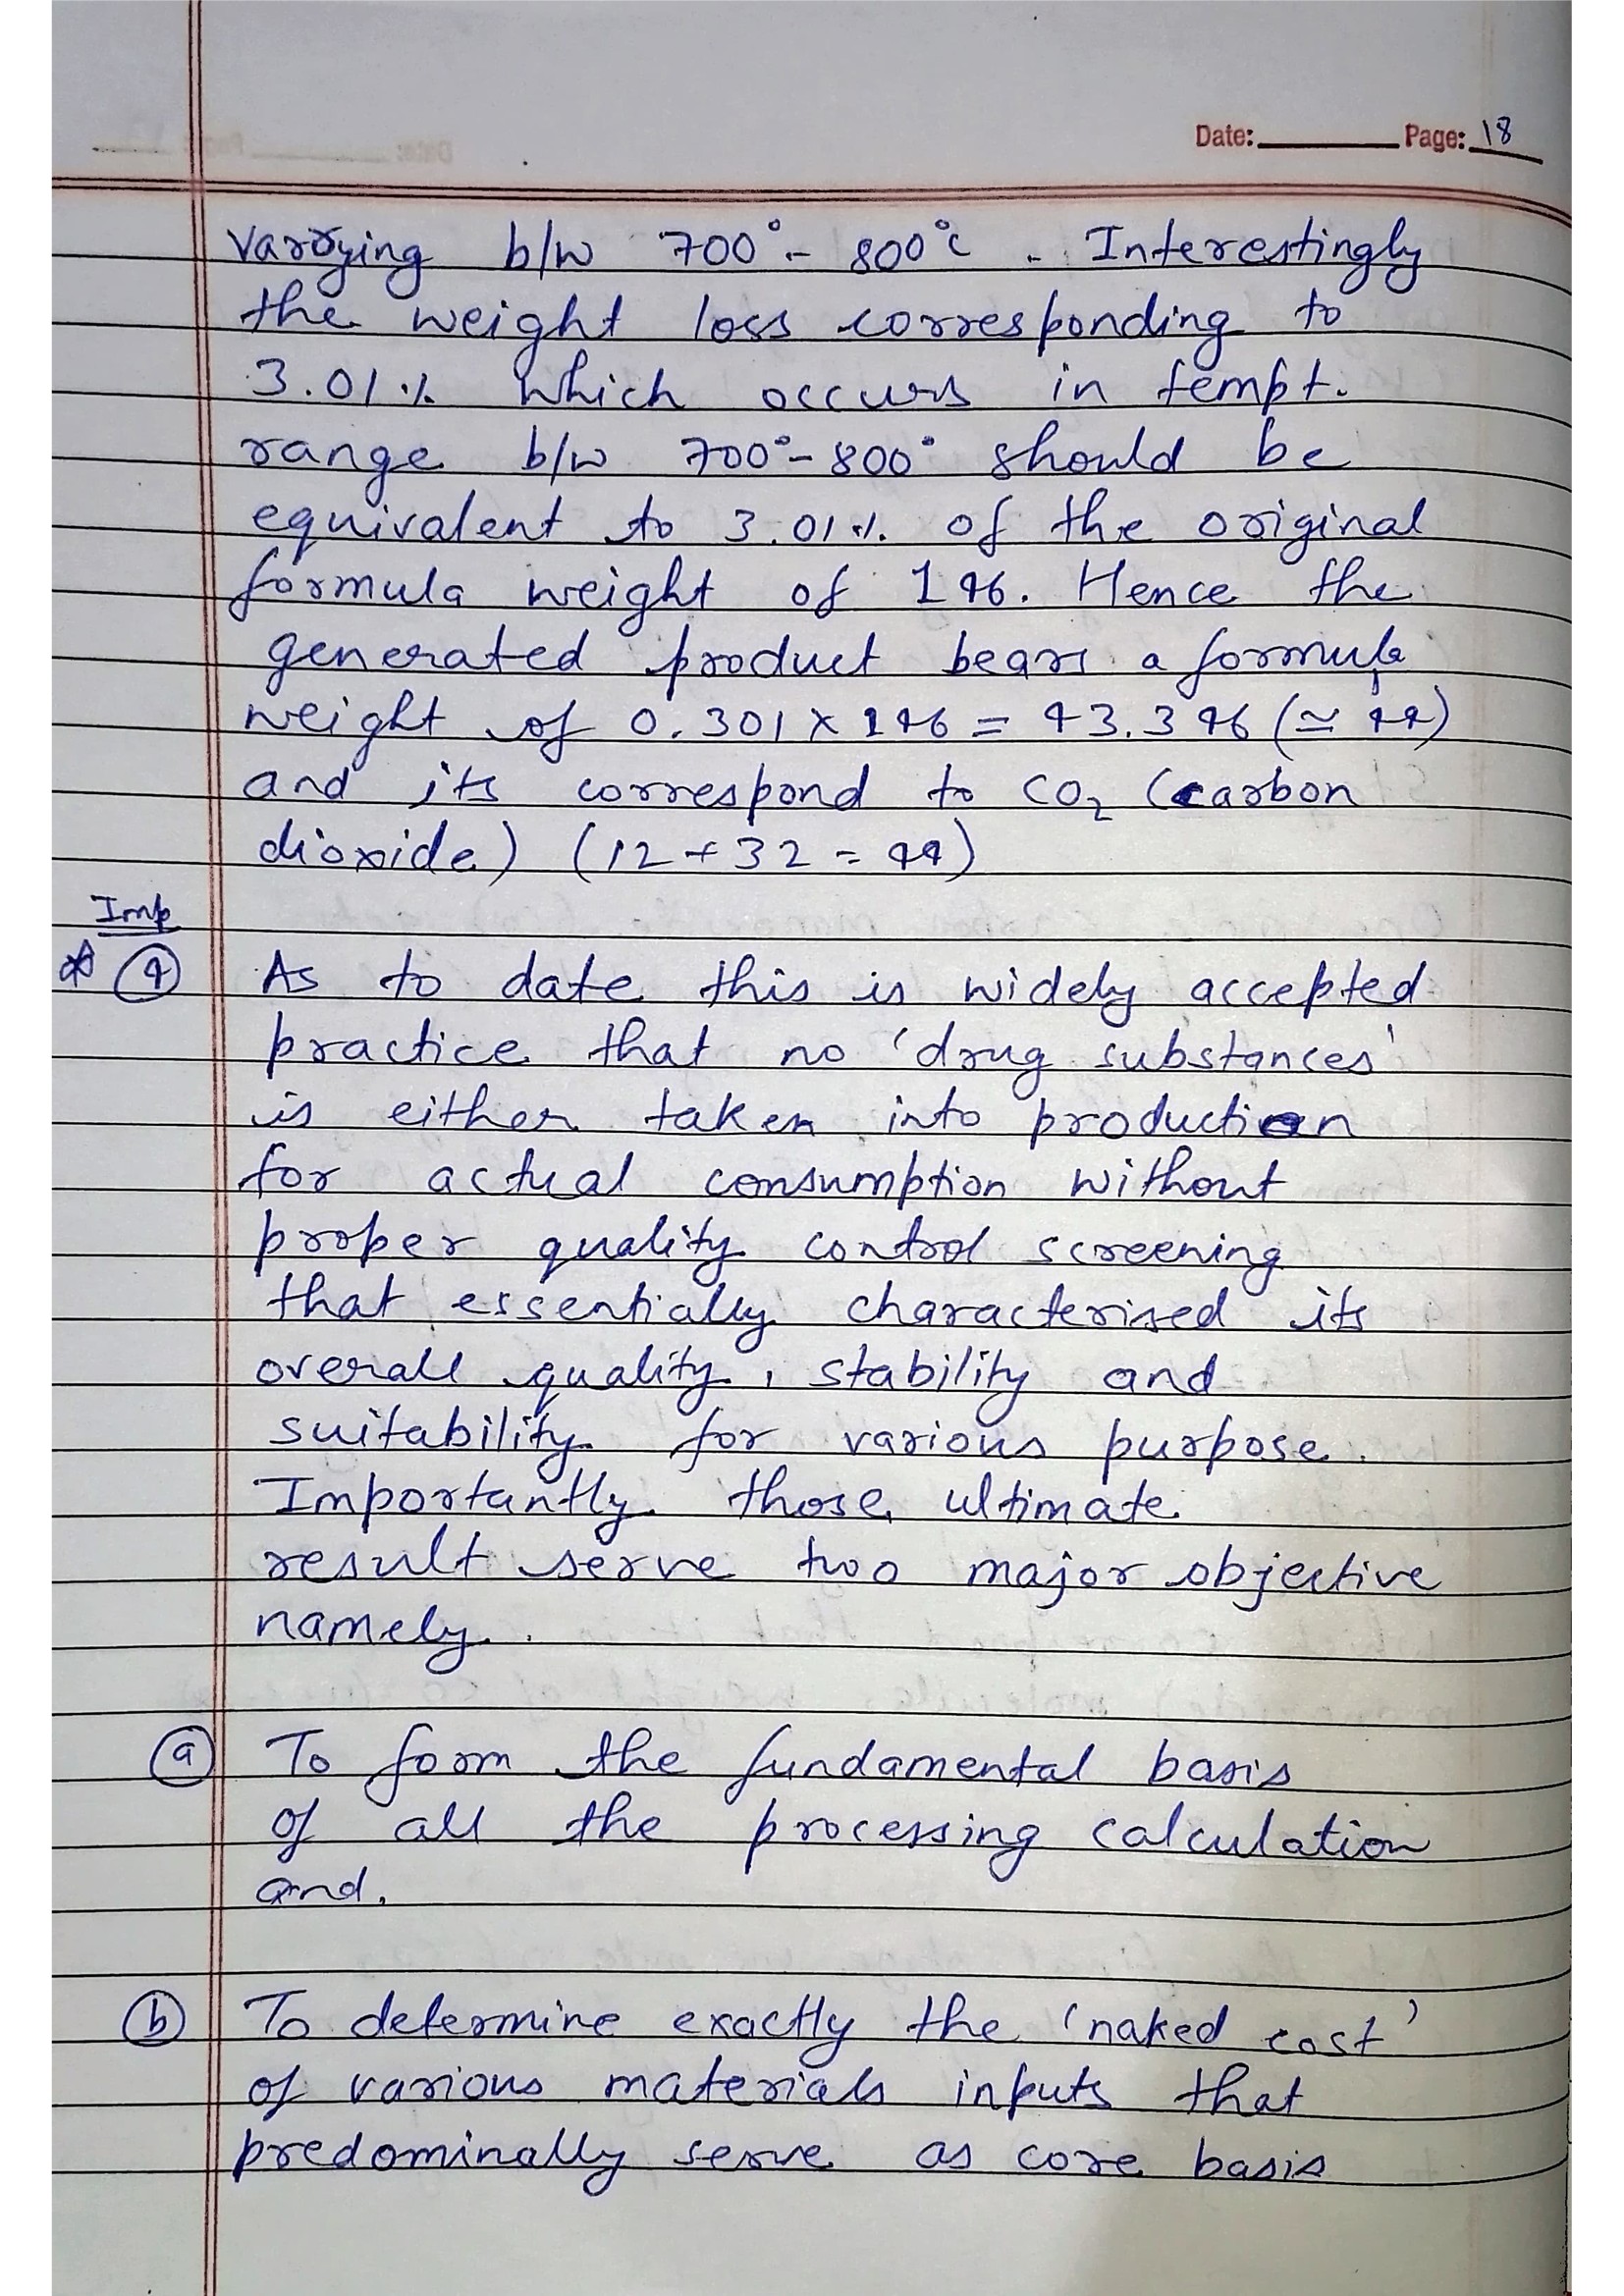 Date: Page: 18
varying b/w 700° - 800°c . Interestingly
the weight loss corresponding to
3.01% which occurs in tempt.
range b/w 700°-800° should be
equivalent to 3.01% of the original
formula weight of 146. Hence the
generated product bears a formula
weight of 0.301 x 146 = 43.346 (≃ 44)
and its correspond to CO₂ (carbon
dioxide) (12+32 = 44)
Imp
* ④ As to date this is widely accepted
practice that no 'drug substances'
is either taken into production
for actual consumption without
proper quality control screening
that essentially characterised its
overall quality, stability and
suitability for various purpose.
Importantly those ultimate
result serve two major objective
namely.
ⓐ To form the fundamental basis
of all the processing calculation
and.
ⓑ To determine exactly the 'naked cost'
of various materials inputs that
predominally serve as core basis